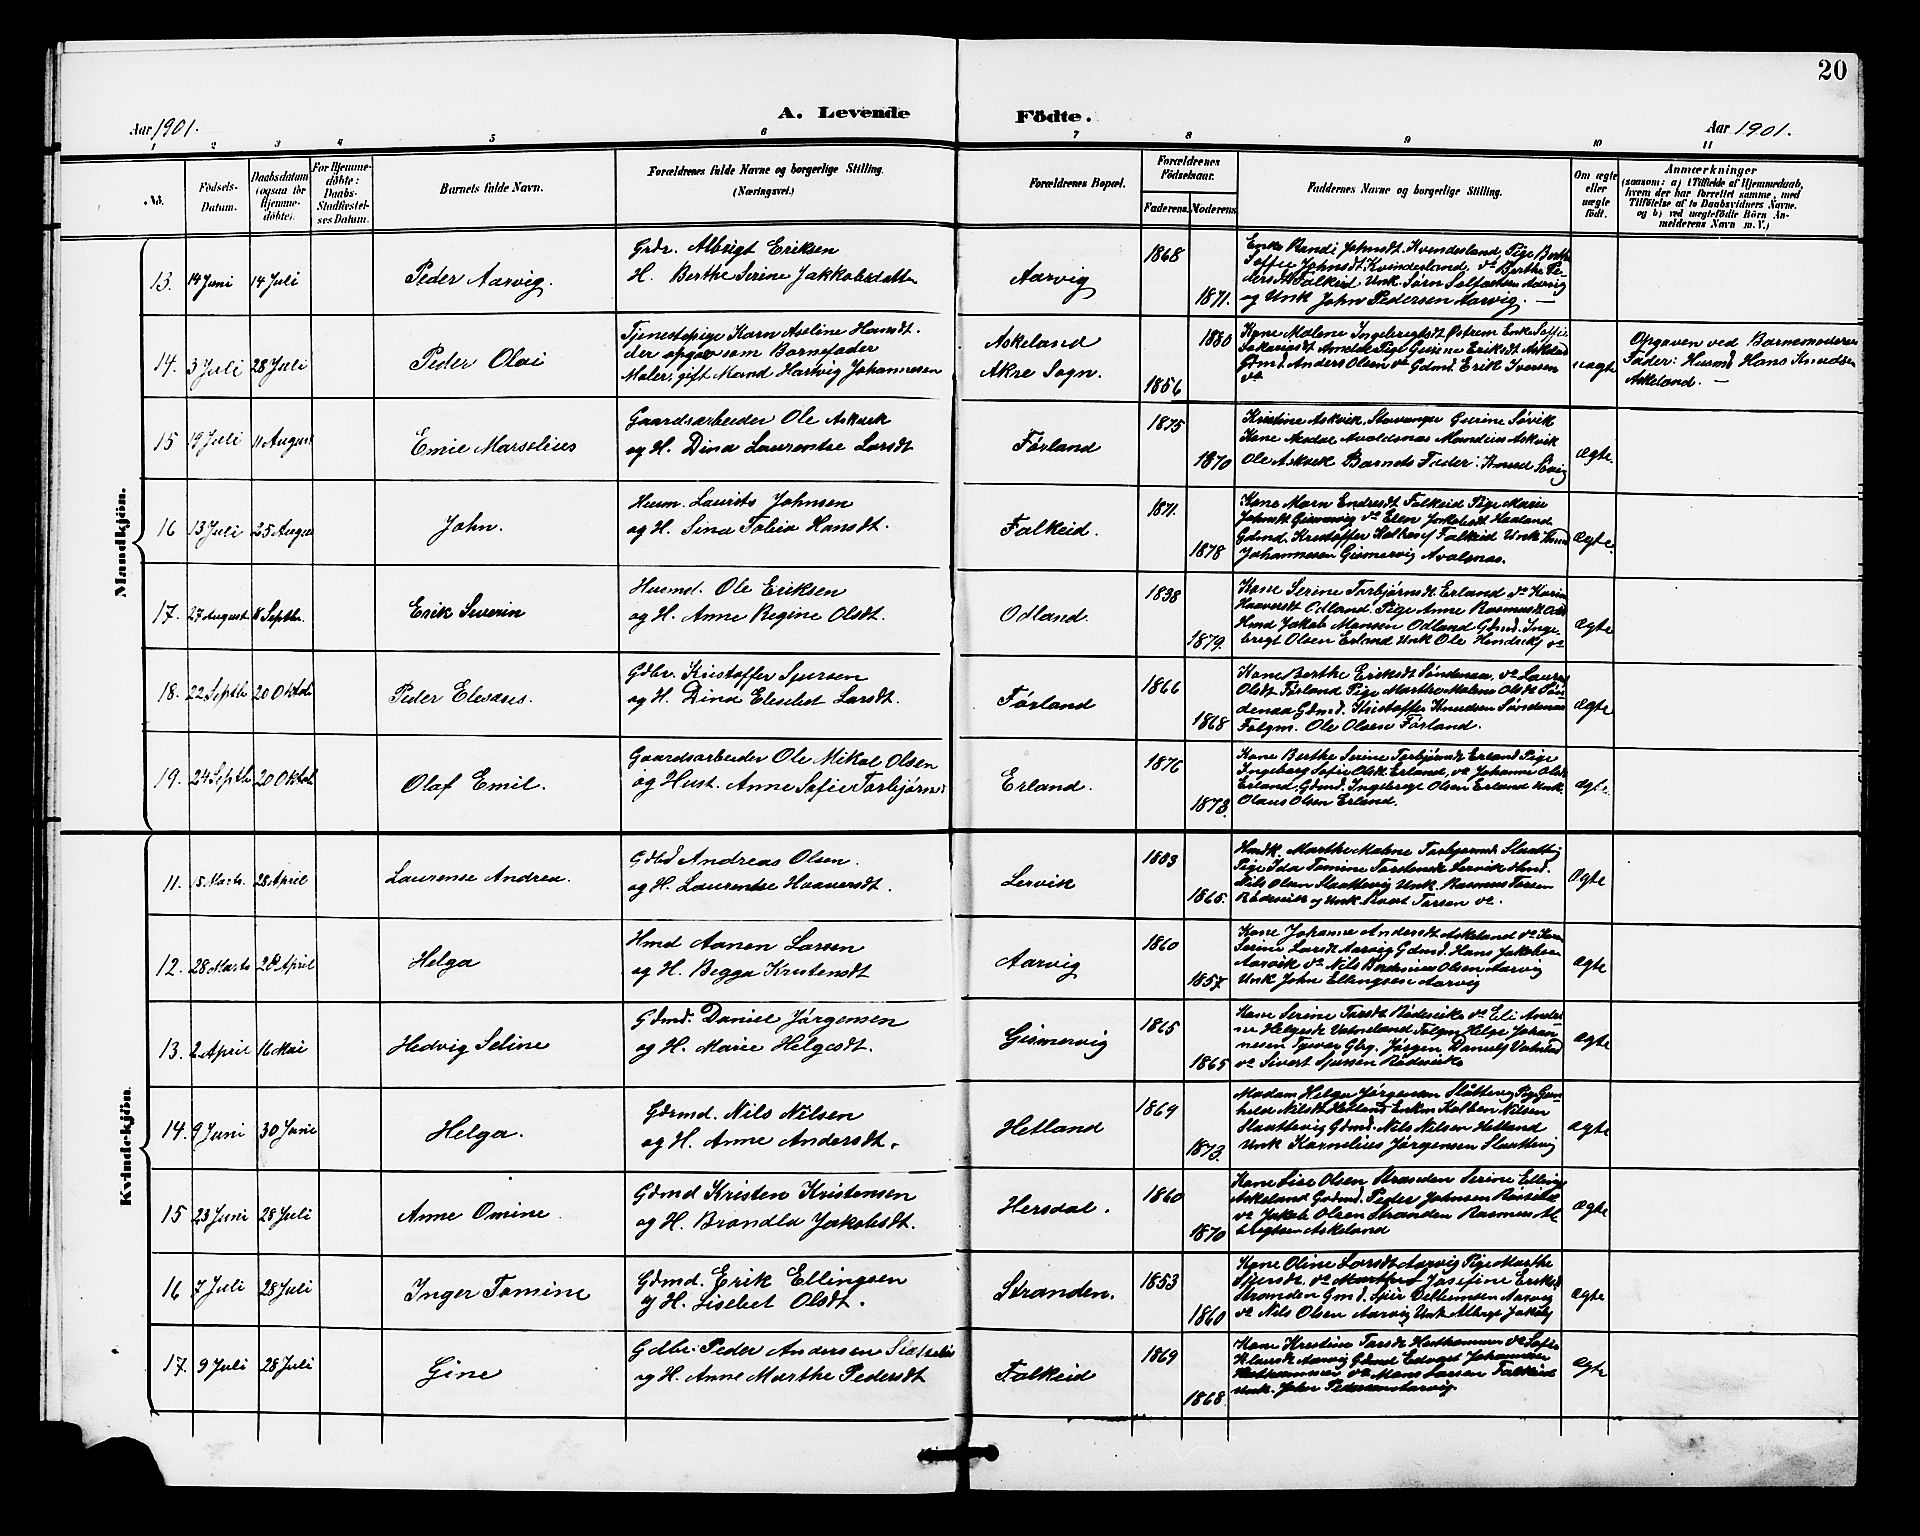 20
A. Levende Födte.
Aar 1901.
Aar 1901.
1 2 3 4 5 6 7 8 9 10 11
No.
Födsels-Datum.
Daabsdatum (ogsaa for Hjemmedöbte).
For Hjemmedöbte: Daabs-Stadfæstelses Datum.
Barnets fulde Navn.
Forældrenes fulde Navne og borgerlige Stilling.
(Næringsvei.)
Forældrenes Bopæl.
Forældrenes Födselsaar.
Faderens. Moderens.
Faddernes Navne og borgerlige Stilling.
Om ægte eller uægte födt.
Anmærkninger
(saasom: a) i Tilfælde af Hjemmedaab, hvem der har forrettet samme, med Tilföielse af to Daabsvidners Navne. og b) ved uægtefödte Börn Anmelderens Navn m. V.)
Mandkjön.
13. 14 Juni 14 Juli Peder Aarvig.
Grdr. Albrigt Eriksen
H. Berthe Serine Jakkobsdatter
Aarvig 1868 1871.
Enke Randi Johnsdt. Kvindesland Pige Berthe
Soffie Johnsdt Kvindesland. do Berthe Pe-
dersdt Falkeid Unk Sørn Salfastsen Aarvig
og Unk John Pedersen Aarvig. —
14. 3 Juli 28 Juli Peder Olai
Tjenestepige Karn Aseline Hansdt.
der opgav som Barnefader
Maler, gift Mand Hartvig Johannesen
Askeland
Akre Sogn.
1880 1856
Kone Malene Ingebregtsdt Østrem Enke Soffie
Pige Gurine Eriksdt Askeland
Gdmd. Anders Olsen do Gdmd. Erik Iversen
do
uægte
Opgaven ved Barnemoderens
Fader: Husmd Hans Knudsen
Askeland. —
15 19 Juli 11 August Emil Marselius
Gaardsarbeider Ole Askvik
og H. Dina Laurentse Larsdt
Førland 1875 1870
Kristine Askvik Stavanger Gurine Søvik
Kone Avaldsnæs Mandius Askvik
Ole Askvik Barnets Fader: Knud Søvig
ægte.
16 13 Juli 25 August John.
Husm. Laurits Johnsen
og H. Sina Tobia Hansdt.
Falkeid. 1871. 1878
Kone Marn Endresdt Falkeid Pige Marie
Johnsdt Gismervig do Elen Jakobsdt Hauland
Gdmd. Kristoffer Falkeid Unk Knud
Johannesen Gismervig Avalsnæs.
ægte.
17. 27 August 8 Septbr. Erik Severin
Husmd. Ole Eriksen
og H. Anne Regine Olsdt.
Odland. 1838 1879.
Kone Serine Torbjørnsdt Erland do Karin
Haaversdt Odland. Pige Anne Rasmusdt Od
Hmd Jakob Monsen Odland Gdmd. Inge-
bregt Olsen Erland Unk Ole Hendriks do
ægte
18. 22 Septb 20 Oktob Peder Eleseus.
Gdbr. Kristoffer Sjursen
og H. Dina Elesebet Larsdt.
Førland 1866 1868
Kone Berthe Eriksdt Søndenaa. do Laura
Olsdt Førland Pige Marthe Malene Olsdt Søn-
denaa Gdmd. Kristoffer Knudsen Søndenaa
Folgm. Ole Olsen Førland.
ægte
19. 24 Septb 20 Oktob Olaf Emil.
Gaardsarbeider Ole Mikal Olsen
og Hust. Anne Sofie Torbjørns
Erland. 1876 1873.
Kone Berthe Serine Torbjørnsdt Erland Pige
Ingeborg Sofie Olsdt Erland, do Johanne Olsdt
Erland. Gdmd. Ingebregt Olsen Erland Unk.
Olaus Olsen Erland.
ægte.
Kvindekjön
11. 15 Marts. 28 April Laurense Andrea.
Gdbd Andreas Olsen.
og H. Laurentse Haaversdt.
Lervik 1863 1865.
Hmdk. Marthe Malene Torbjørnsd Slaatvig
Pige Ida Tomine Tordensdt Lervik Hmd.
Nils Olsen Slaattevig Unk. Rasmus Torsen
Rødesvik og Unk. Torsen do.
Ægte
12. 28 Marts 28 April Helga
Hmd Aanen Larsen
og H. Begga Kristensdt
Aarvig 1860 1857.
Kone Johanne Andersdt Askeland do Karn
Serine Larsdt Aarvig Gdmd. Hans Jakobsen
Aarvik do Nils Olsen Aarvig
Unk John Ellingsen Aarvig
ægte
13. 2 April 16 Mai Hedvig Seline
Gdmd. Daniel Jørgensen
og H. Marie Helgesdt.
Gismervig 1865 1865
Kone Serine Torsdt Rødesvik do Eli Andre-
ne Helgesdt Vatneland Folgm Helge Johan-
nesen Tysvær Gbg. Jørgen Daniels Vatneland
do Sivert Sjursen Rødesvik
ægte
14. 9 Juni 30 Juni Helga.
Gdrmd. Nils Nilsen
og H. Anne Andersdt.
Hetland 1869 1873.
Madam Helga Jørgensen Slåttevig Pig Gun-
held Nilsdt Hetland Enkm Kolben Nilsen
Slaattevig Gdmd. Nils Nilsen Hetland
Unk Kornelius Jørgensen Slaattevig
ægte
15 23 Juni 28 Juli Anne Omine
Gdmd Kristen Kristensen
og H. Brondla Jakobsdt.
Hersdal. 1860 1870
Kone Lise Olsen Stranden Serine Ellings
Askeland Grdmd. Peder Johnsen
do Jakob Olsen Stranden Rasmus Al-
bregtsen Askeland
ægte
16 7 Juli 28 Juli Inger Tomine
Gdmd. Erik Ellingsen
og H. Lisebet Olsdt.
Stranden. 1853 1860
Kone Oline Larsdt Aarvig Pige Marthe
Sjursdt. do Marthe Josefine Eriksd
Stranden Gmd. Sjur Aarvig
do Nils Olsen Aarvig Unk Albregt Jakobs
ægte
17. 9 Juli 28 Juli Gine
Gdbr. Peder Andersen
og H. Anne Marthe Pedersdt
Falkeid 1869 1868
Kone Kristine Torsdt Hesthammer do Sofie
Klausdt Aarvig Gdmd Edvart Johannesen
Hesthammer do Mons Larsen Falkeid
Unk. John Pedersen Aarvig.
ægte